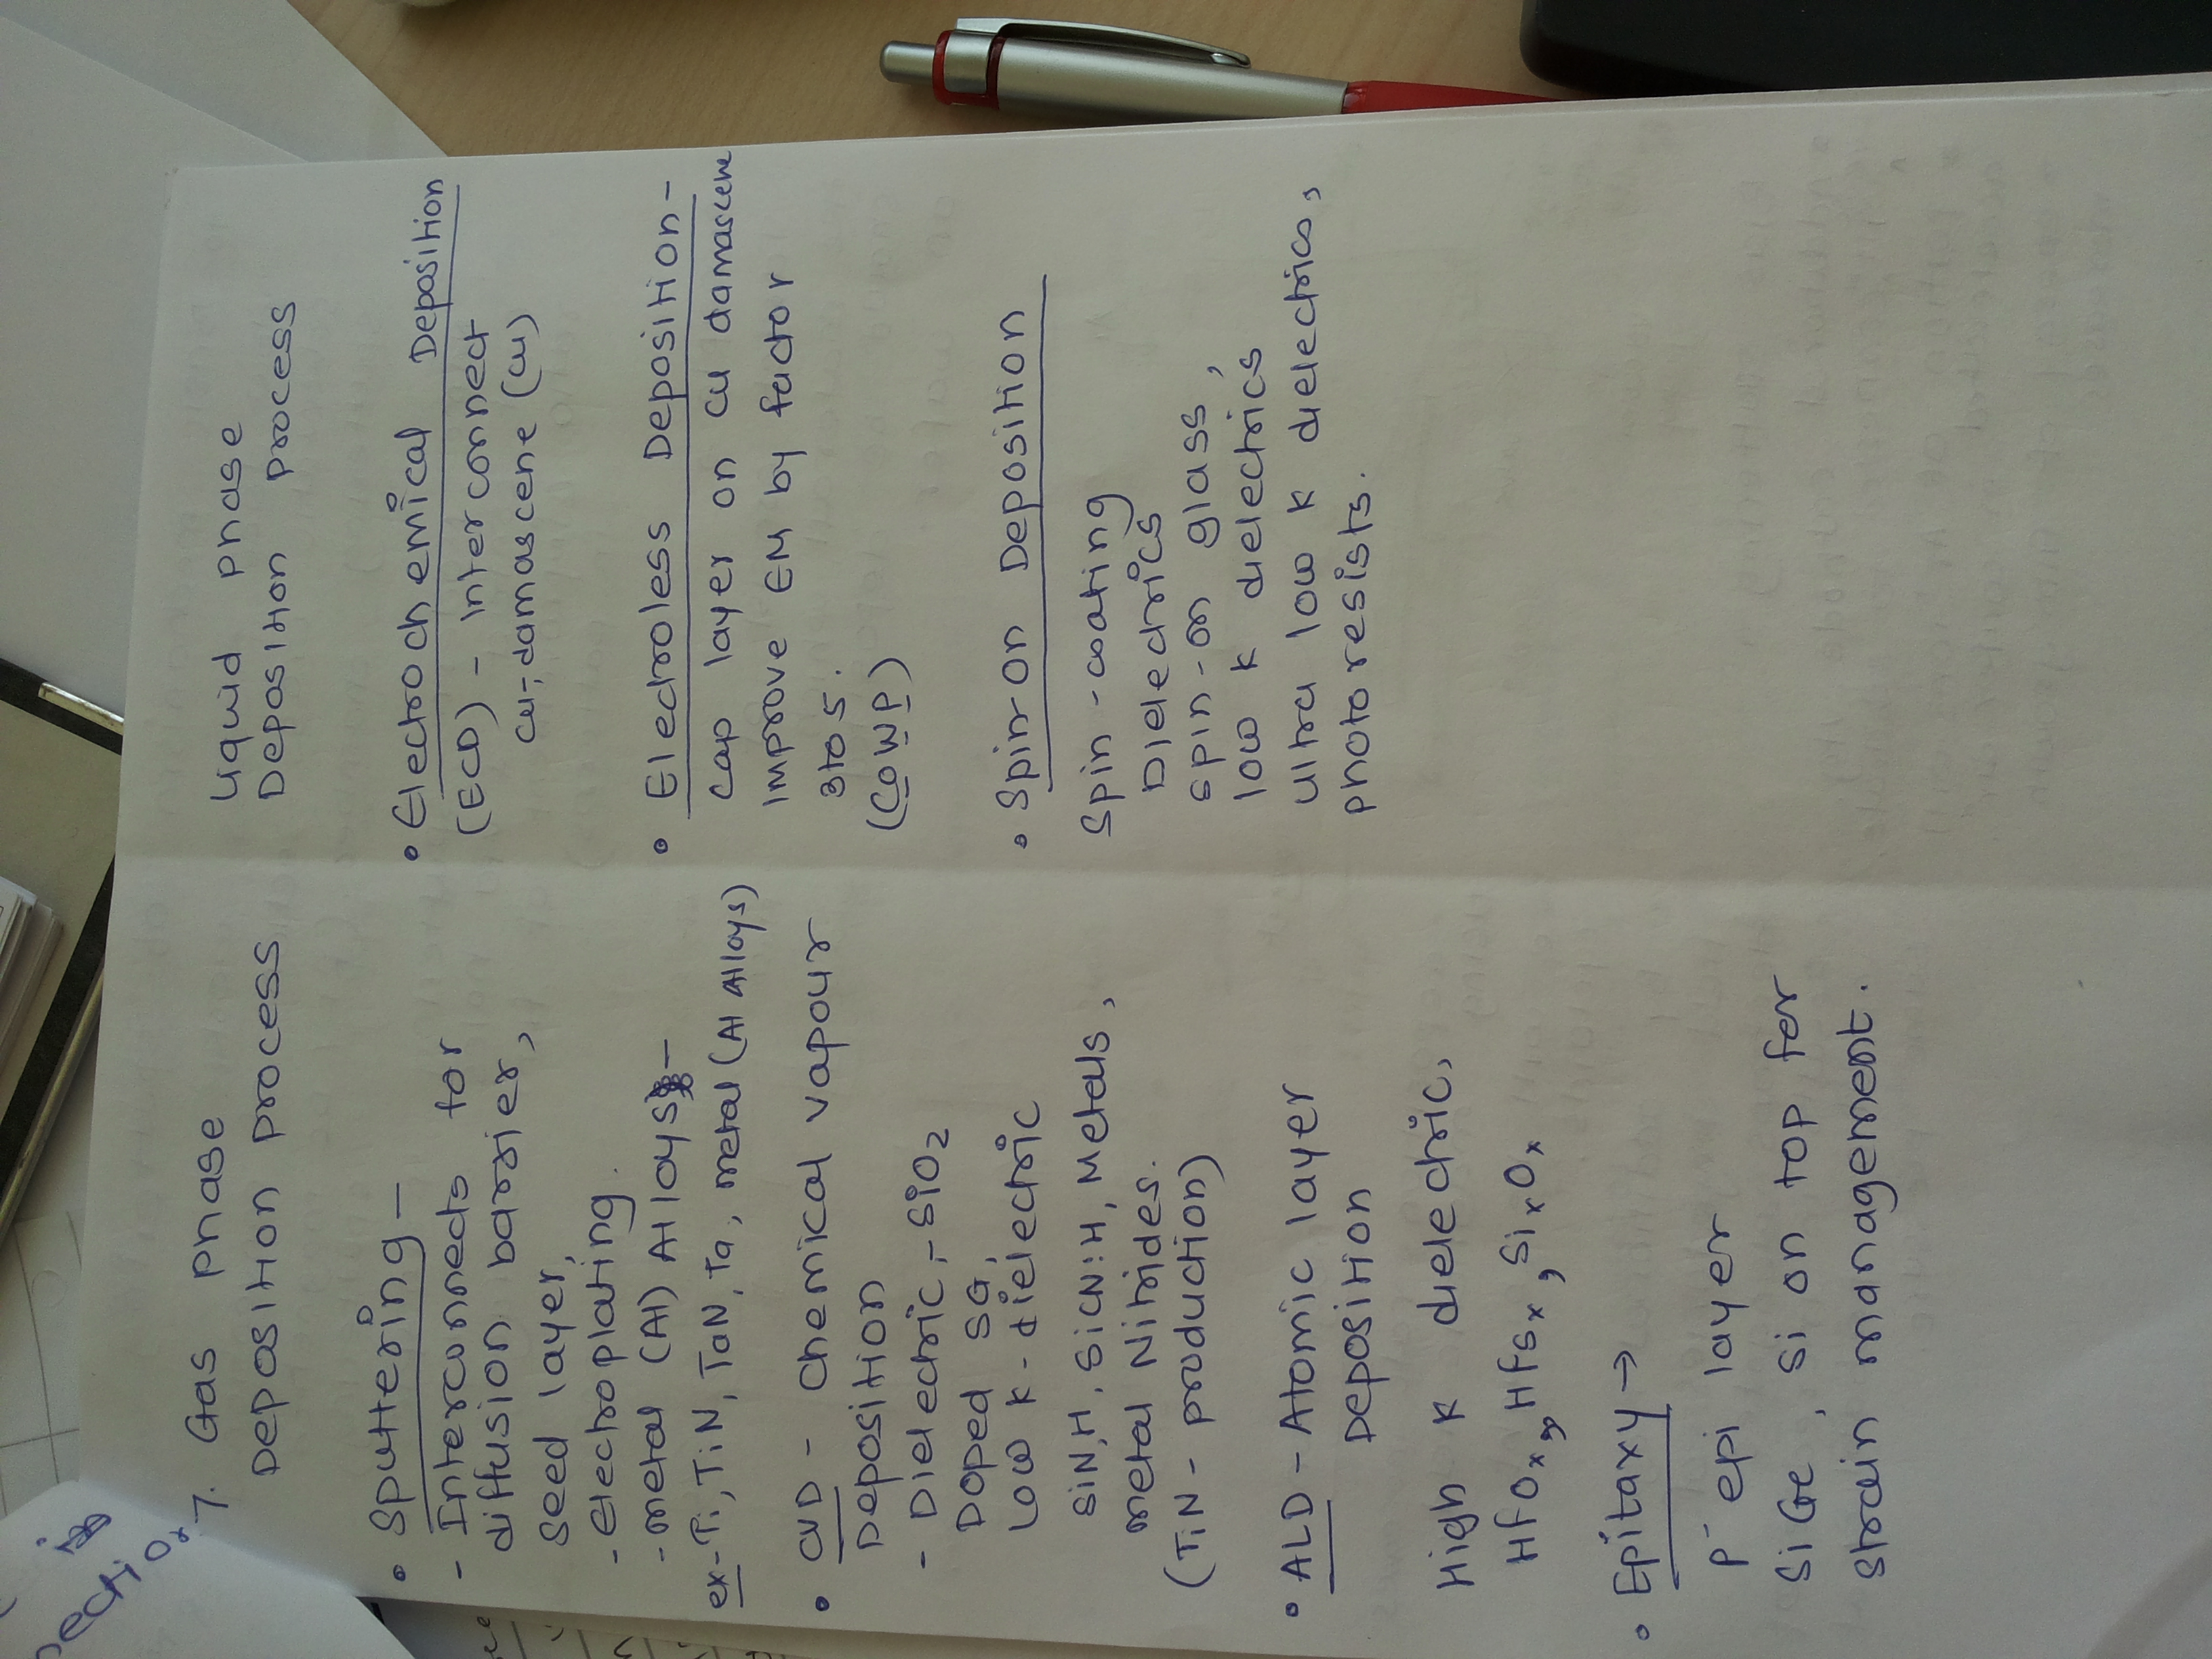 7. Gas phase
Deposition process
• Sputtering -
- Interconnects for
diffusion barrier,
seed layer,
- electroplating.
- metal (Al) Alloys -
ex- Ti, TiN, TaN, Ta, metal (Al Alloys)
• CVD - chemical vapour
Deposition
- Dielectric, - SiO2
Doped SG,
Low K - dielectric
SiN,H, SiCN:H, Metals,
metal Nitrides.
(TiN - production)
• ALD - Atomic layer
Deposition
High K dielectric,
HfOx, HfSx, SixOx
• Epitaxy →
p⁻ epi layer
SiGe, Si on top for
strain management.
Liquid phase
Deposition process
• Electrochemical Deposition
(ECD) - Interconnect
Cu-damascene (Cu)
• Electroless Deposition -
cap layer on Cu damascene
Improve EM by factor
3 to 5.
(CoWP)
• Spin-on Deposition
Spin-coating
Dielectrics
spin-on glass,
low K dielectrics
ultra low K dielectrics,
photoresists.
ection